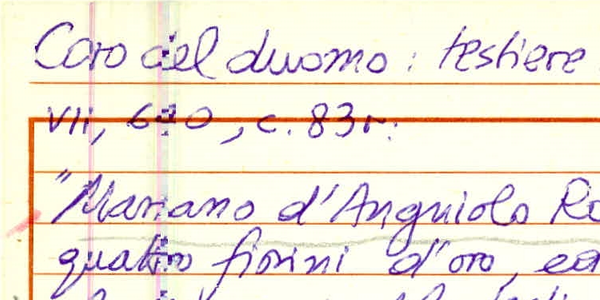 Coro del duomo: testiere
VII, 610, c. 83r.
"Mariano d'Angniolo Ro
quattro fiorini d'oro, ed